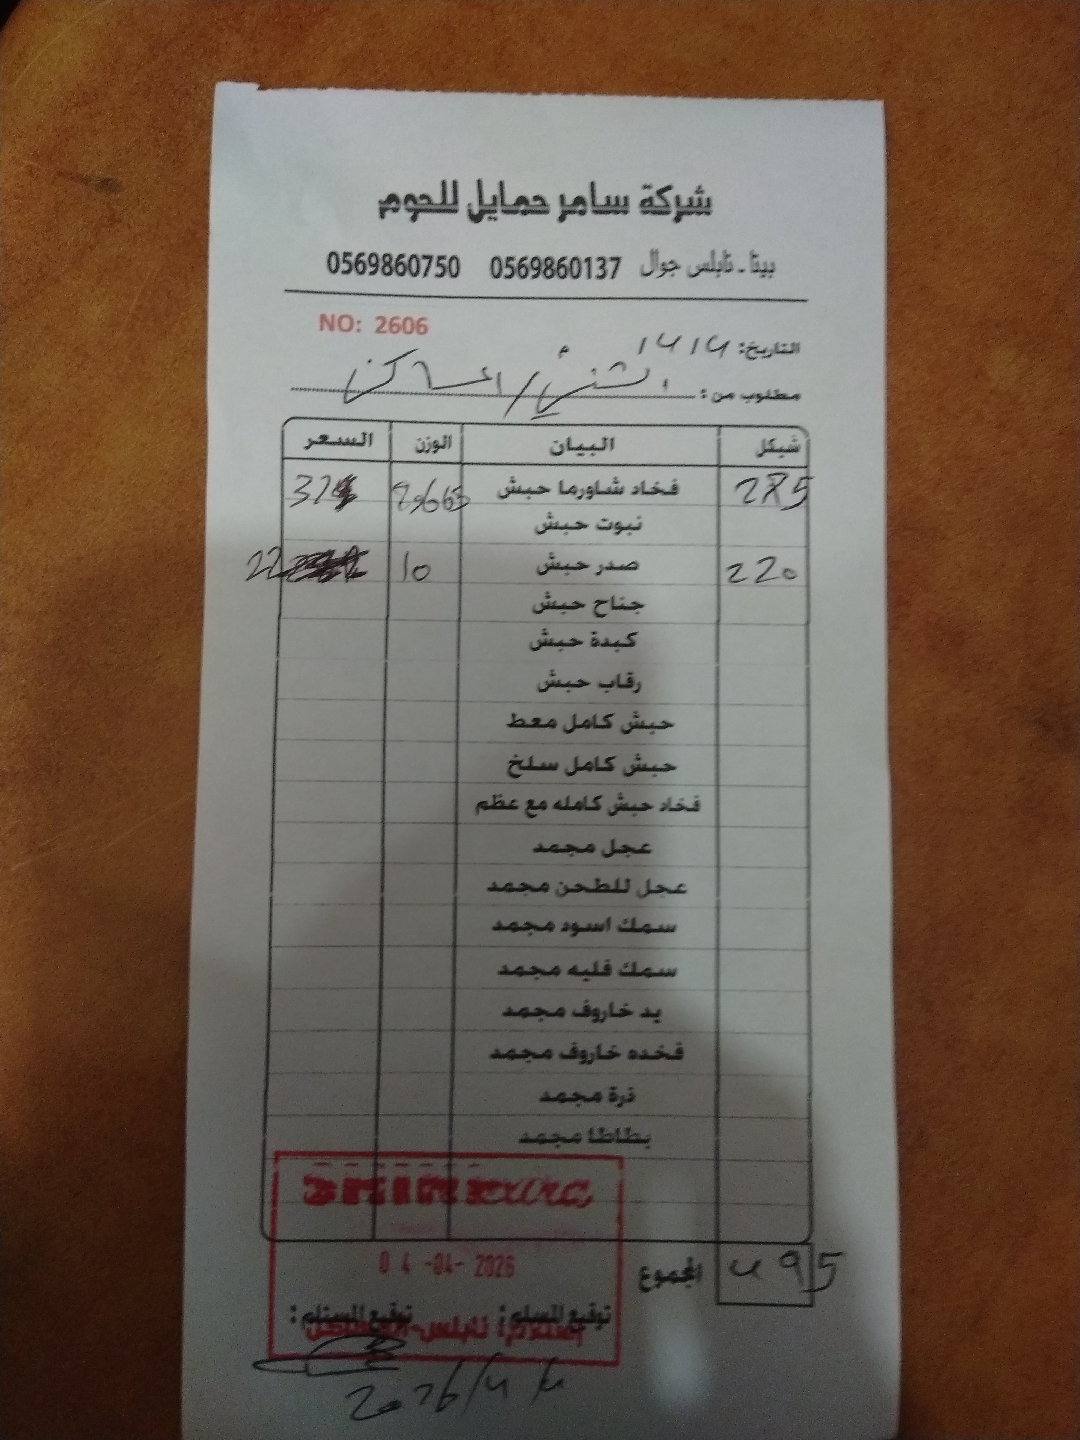 شركة سامر حمايل للحوم
بيتا - نابلس جوال 0569860137 0569860750
NO: 2606
التاريخ: 4/4/
مطلوب من:
شيكل البيان الوزن السعر
285 فخاد شاورما حبش 32
نبوت حبش
220 صدر حبش 10 22
جناح حبش
كبدة حبش
رقاب حبش
حبش كامل معط
حبش كامل سلخ
فخاد حبش كامله مع عظم
عجل مجمد
عجل للطحن مجمد
سمك اسود مجمد
سمك فليه مجمد
يد خاروف مجمد
فخده خاروف مجمد
ذرة مجمد
بطاطا مجمد
المجموع 495
04 -04- 2026
توقيع المسلم: توقيع المستلم:
2026/4/4